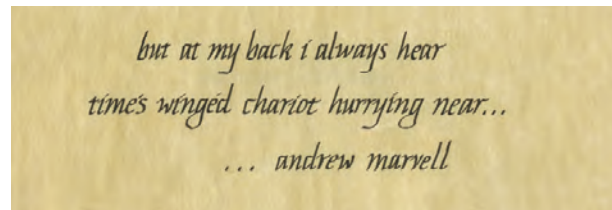 but at my back i always hear
time's wingéd chariot hurrying near...
... andrew marvell